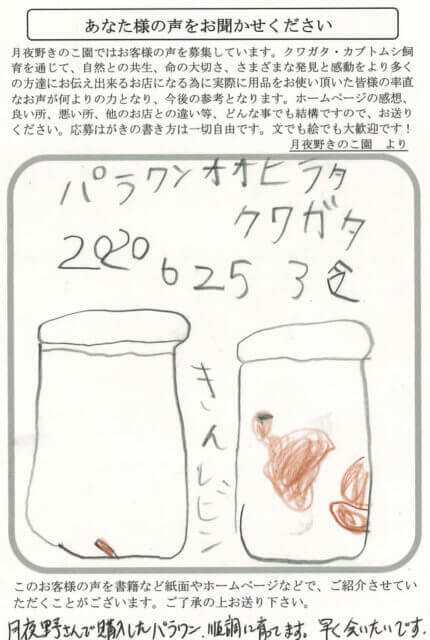 あなた様の声をお聞かせください
月夜野きのこ園ではお客様の声を募集しています。クワガタ・カブトムシ飼
育を通じて、自然との共生、命の大切さ、さまざまな発見と感動をより多く
の方達にお伝え出来るお店になる為に実際に用品をお使い頂いた皆様の率直
なお声が何よりの力となり、今後の参考となります。ホームページの感想、
良い所、悪い所、他のお店との違い等、どんな事でも結構ですので、お送り
ください。応募はがきの書き方は一切自由です。文でも絵でも大歓迎です！
月夜野きのこ園　より
パラワンオオヒラタ
クワガタ
2020
625 3令
きんしビン
このお客様の声を書籍など紙面やホームページなどで、ご紹介させてい
ただくことがございます。ご了承の上お送り下さい。
月夜野さんで購入したパラワン、順調に育ってます。早く会いたいです。